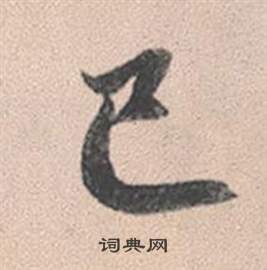 已
词典网